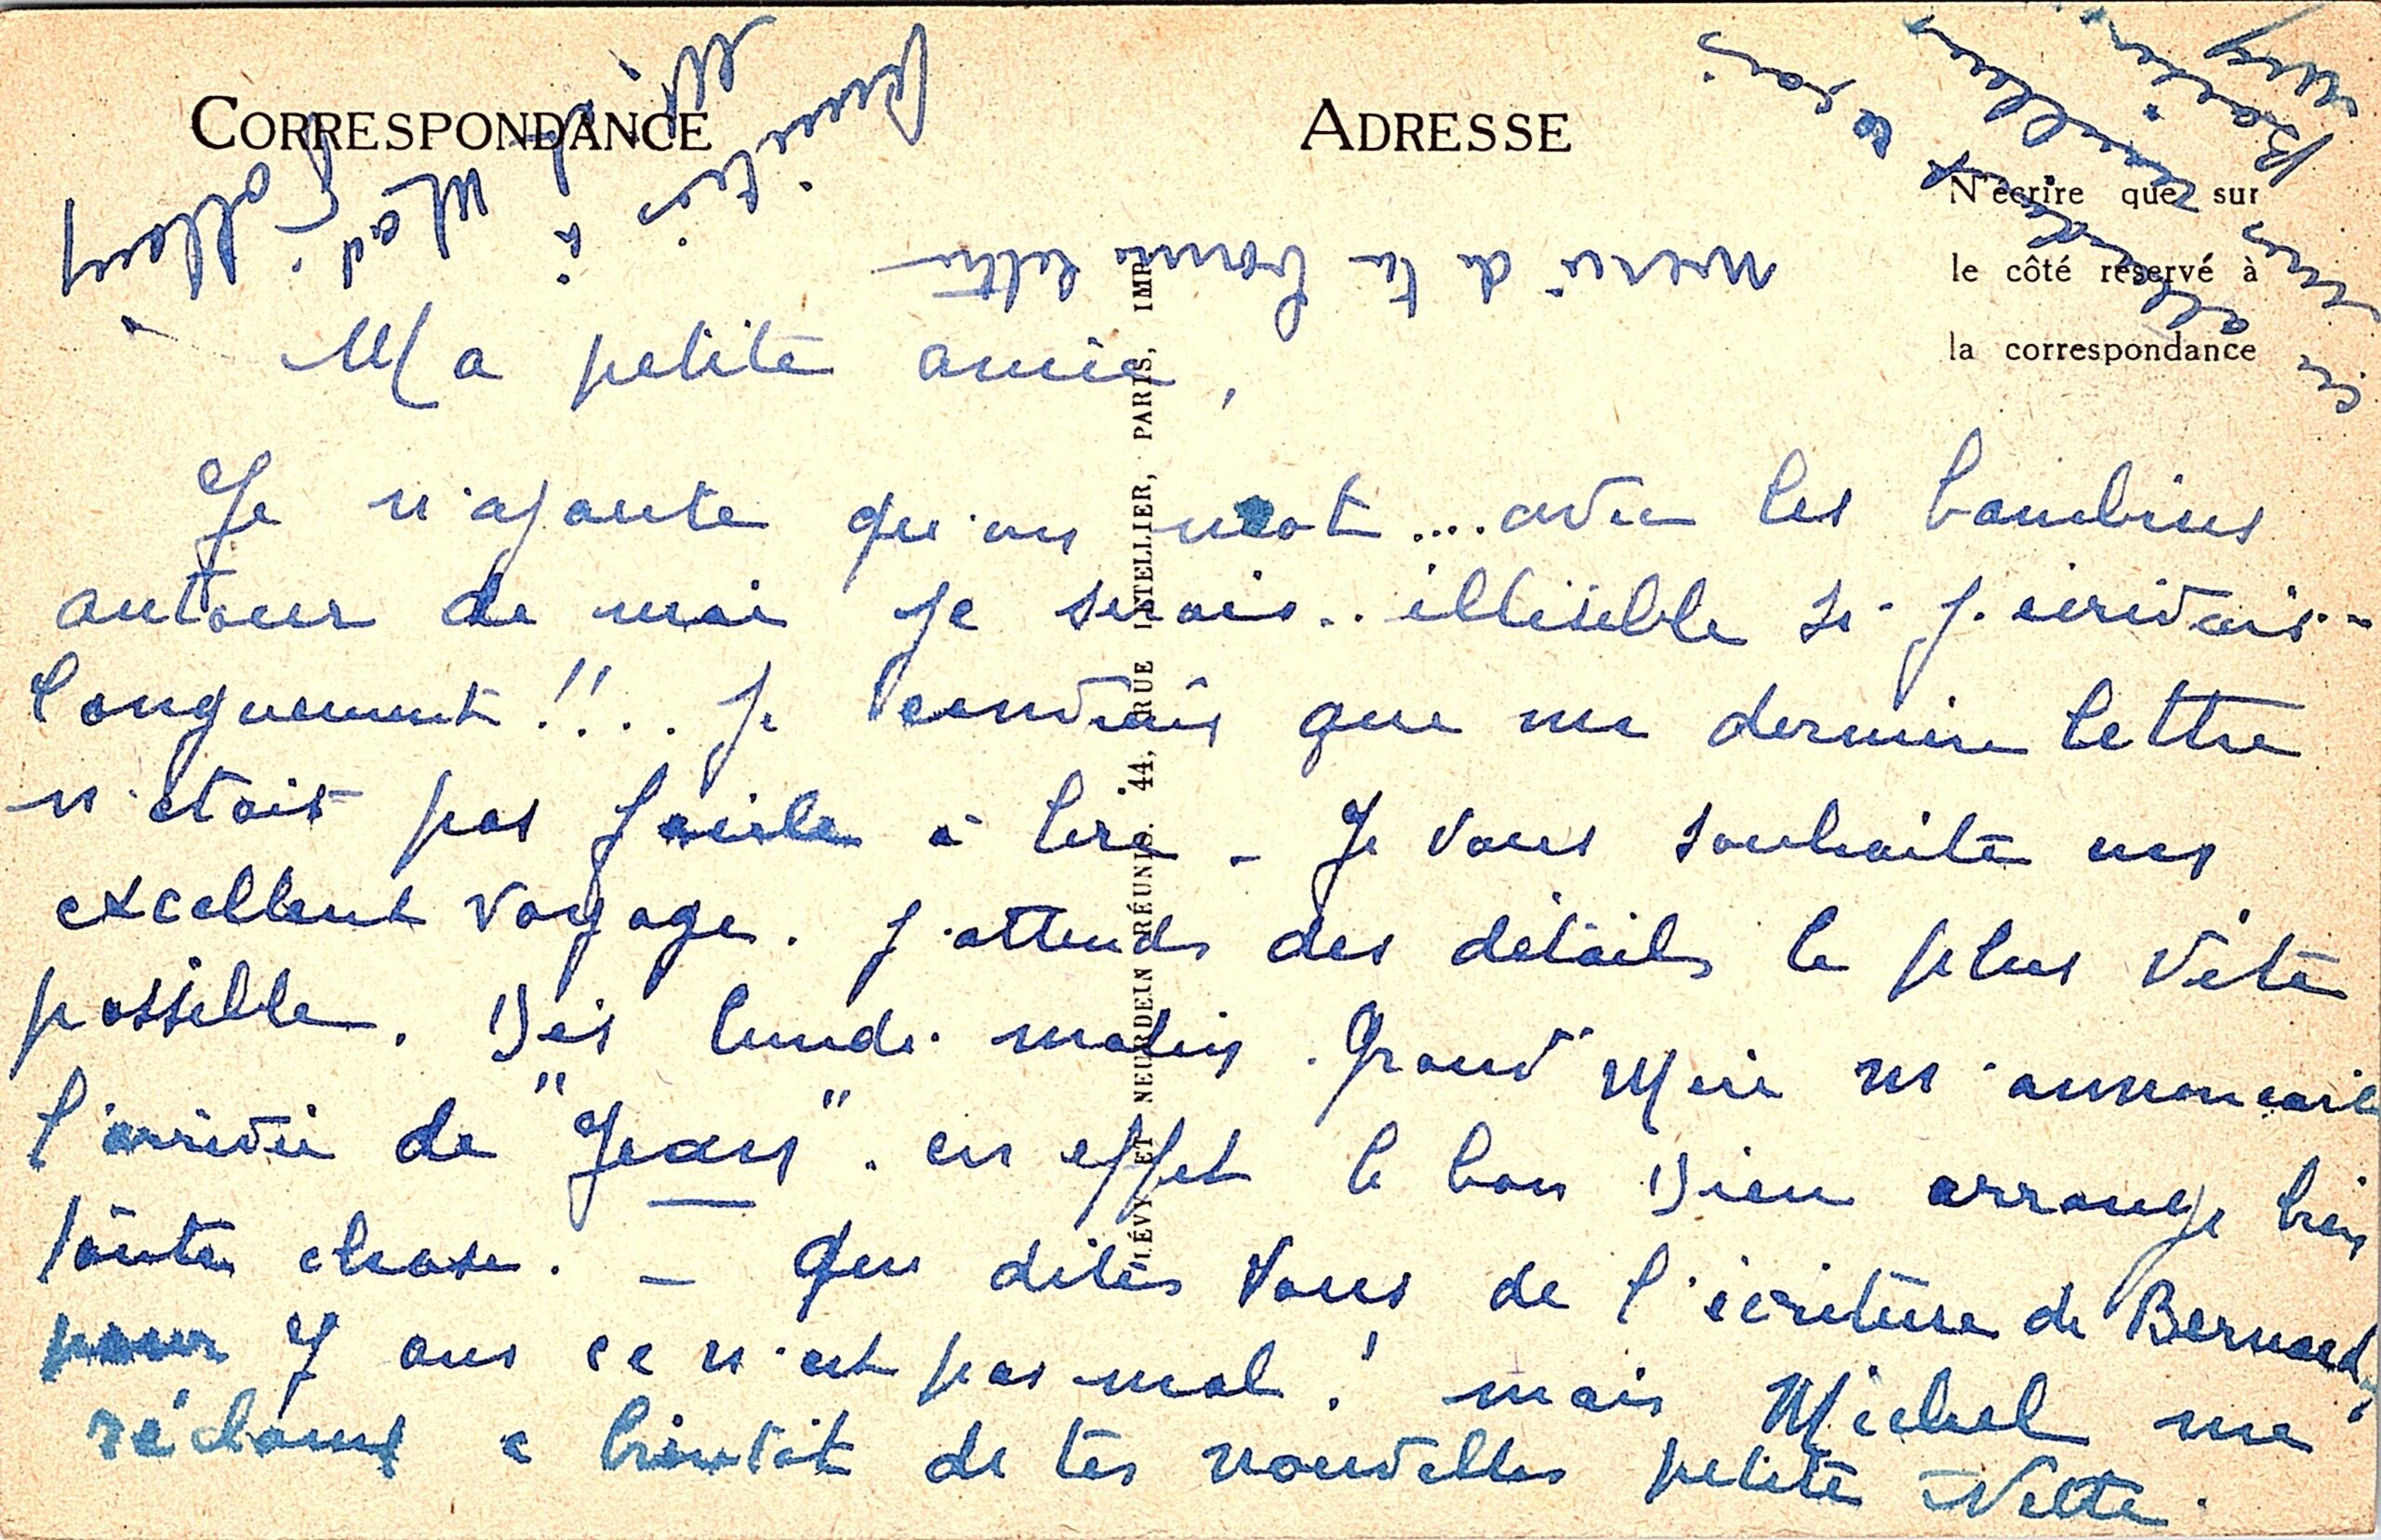 CORRESPONDANCE
ADRESSE
N'écrire que sur
le côté réservé à
la correspondance
LÉVY ET NEURDEIN RÉUNIS. 44, RUE LETELLIER, PARIS, IMP.
merci de ta bonne lettre
Ma petite amie,
Je n'ajoute qu'un mot .... avec les bambins
autour de moi je serais .. illisible si j'écrivais --
longuement !!.. Je craindrais que ma dernière lettre
n'était pas facile à lire - Je vous souhaite un
excellent voyage. J'attends des détails le plus vite
possible. Dès lundi matin. Grand' Mère m'annonçait
l'arrivée de "Jean". en effet le bon Dieu arrange bien
toute chose. - Que dites vous de l'écriture de Bernard,
pour 7 ans ce n'est pas mal ! mais Michel me
réclame à bientôt de tes nouvelles petite Nette.